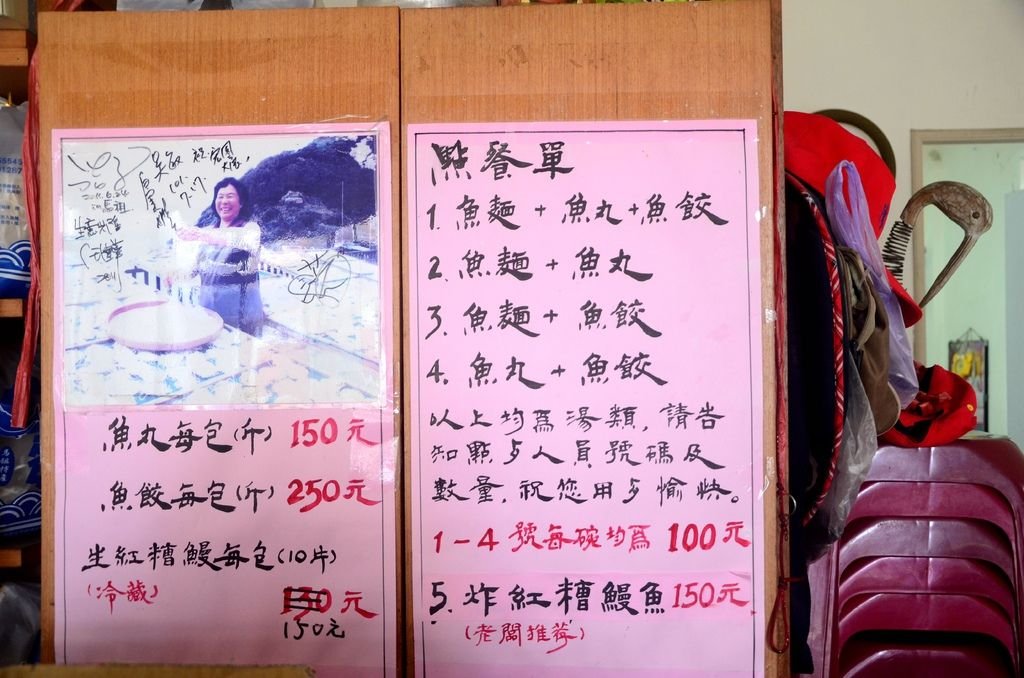 魚丸每包(斤) 150元
魚餃每包(斤) 250元
生紅糟鰻每包(10片)
(冷藏)
元
150元
點餐單
1. 魚麵 + 魚丸 + 魚餃
2. 魚麵 + 魚丸
3. 魚麵 + 魚餃
4. 魚丸 + 魚餃
以上均為湯類, 請告
知點歺人員號碼及
數量, 祝您用歺愉快。
1-4 號每碗均為 100元
5. 炸紅糟鰻魚 150元
(老闆推荐)